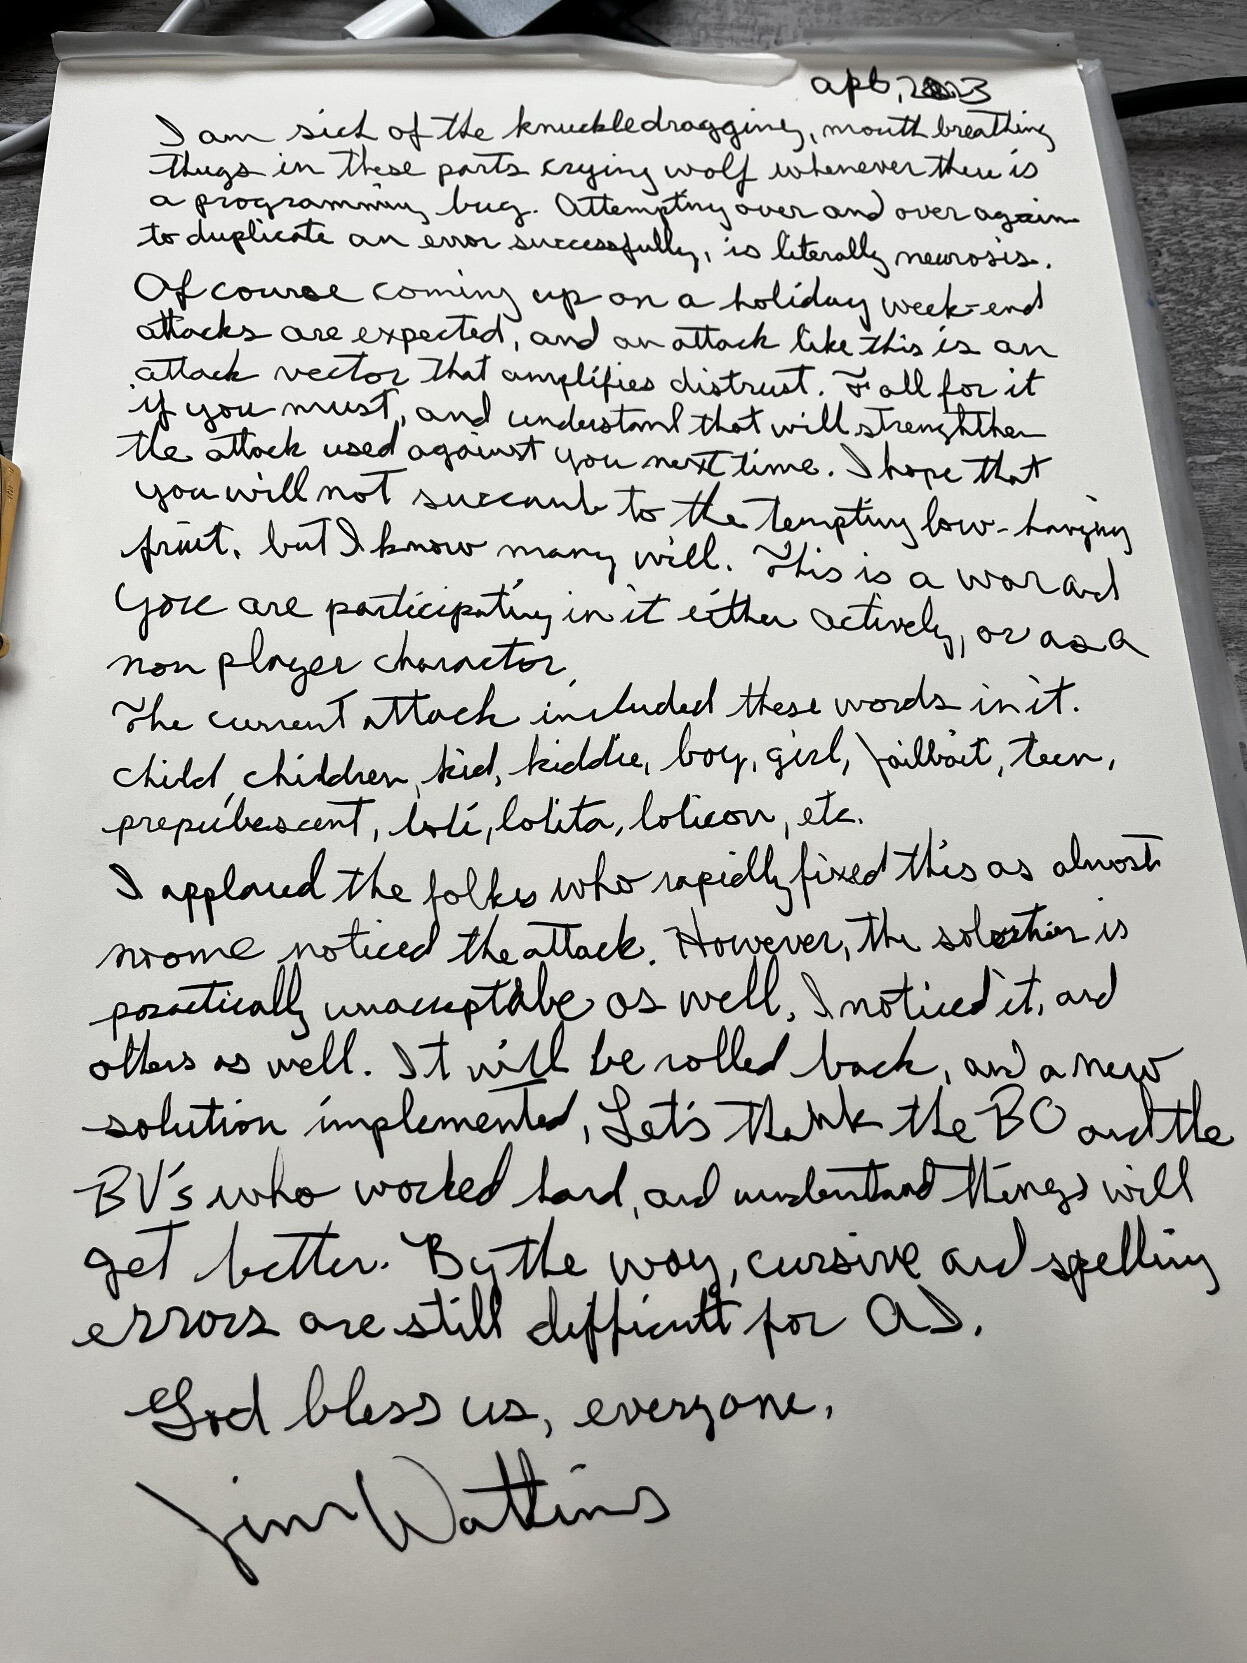 ap6, 2023
I am sick of the knuckledragging, mouth breathing
thugs in these parts crying wolf whenever there is
a programming bug. Attempting over and over again
to duplicate an error successfully, is literally neurosis.
Of course coming up on a holiday week-end
attacks are expected, and an attack like this is an
attack vector that amplifies distrust. Fall for it
if you must, and understand that will strenghthen
the attack used against you next time. I hope that
you will not succumb to the tempting low-hanging
fruit, but I know many will. This is a war and
you are participating in it either actively, or as a
non player character.
The current attack included these words in it.
child, children, kid, kiddie, boy, girl, jailbait, teen,
prepubescent, loli, lolita, lolicon, etc.
I applaud the folks who rapidly fixed this as almost
noone noticed the attack. However, the solution is
practically unacceptable as well. I noticed it, and
others as well. It will be rolled back, and a new
solution implemented, Let's thank the BO and the
BV's who worked hard, and understand things will
get better. By the way, cursive and spelling
errors are still difficult for AI.
God bless us, everyone.
Jim Watkins